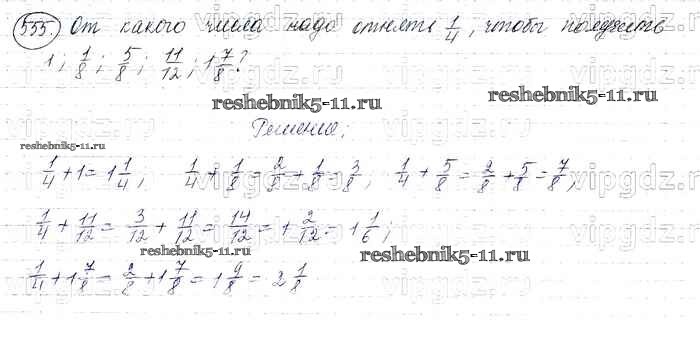 555. От какого числа надо отнять 1/4, чтобы получить
1; 1/8; 5/8; 11/12; 1 7/8?
reshebnik5-11.ru
reshebnik5-11.ru
Решение:
reshebnik5-11.ru
1/4 + 1 = 1 1/4; 1/4 + 1/8 = 2/8 + 1/8 = 3/8; 1/4 + 5/8 = 2/8 + 5/8 = 7/8;
1/4 + 11/12 = 3/12 + 11/12 = 14/12 = 1 2/12 = 1 1/6;
reshebnik5-11.ru
reshebnik5-11.ru
1/4 + 1 7/8 = 2/8 + 1 7/8 = 1 9/8 = 2 1/8
vipgdz.ru